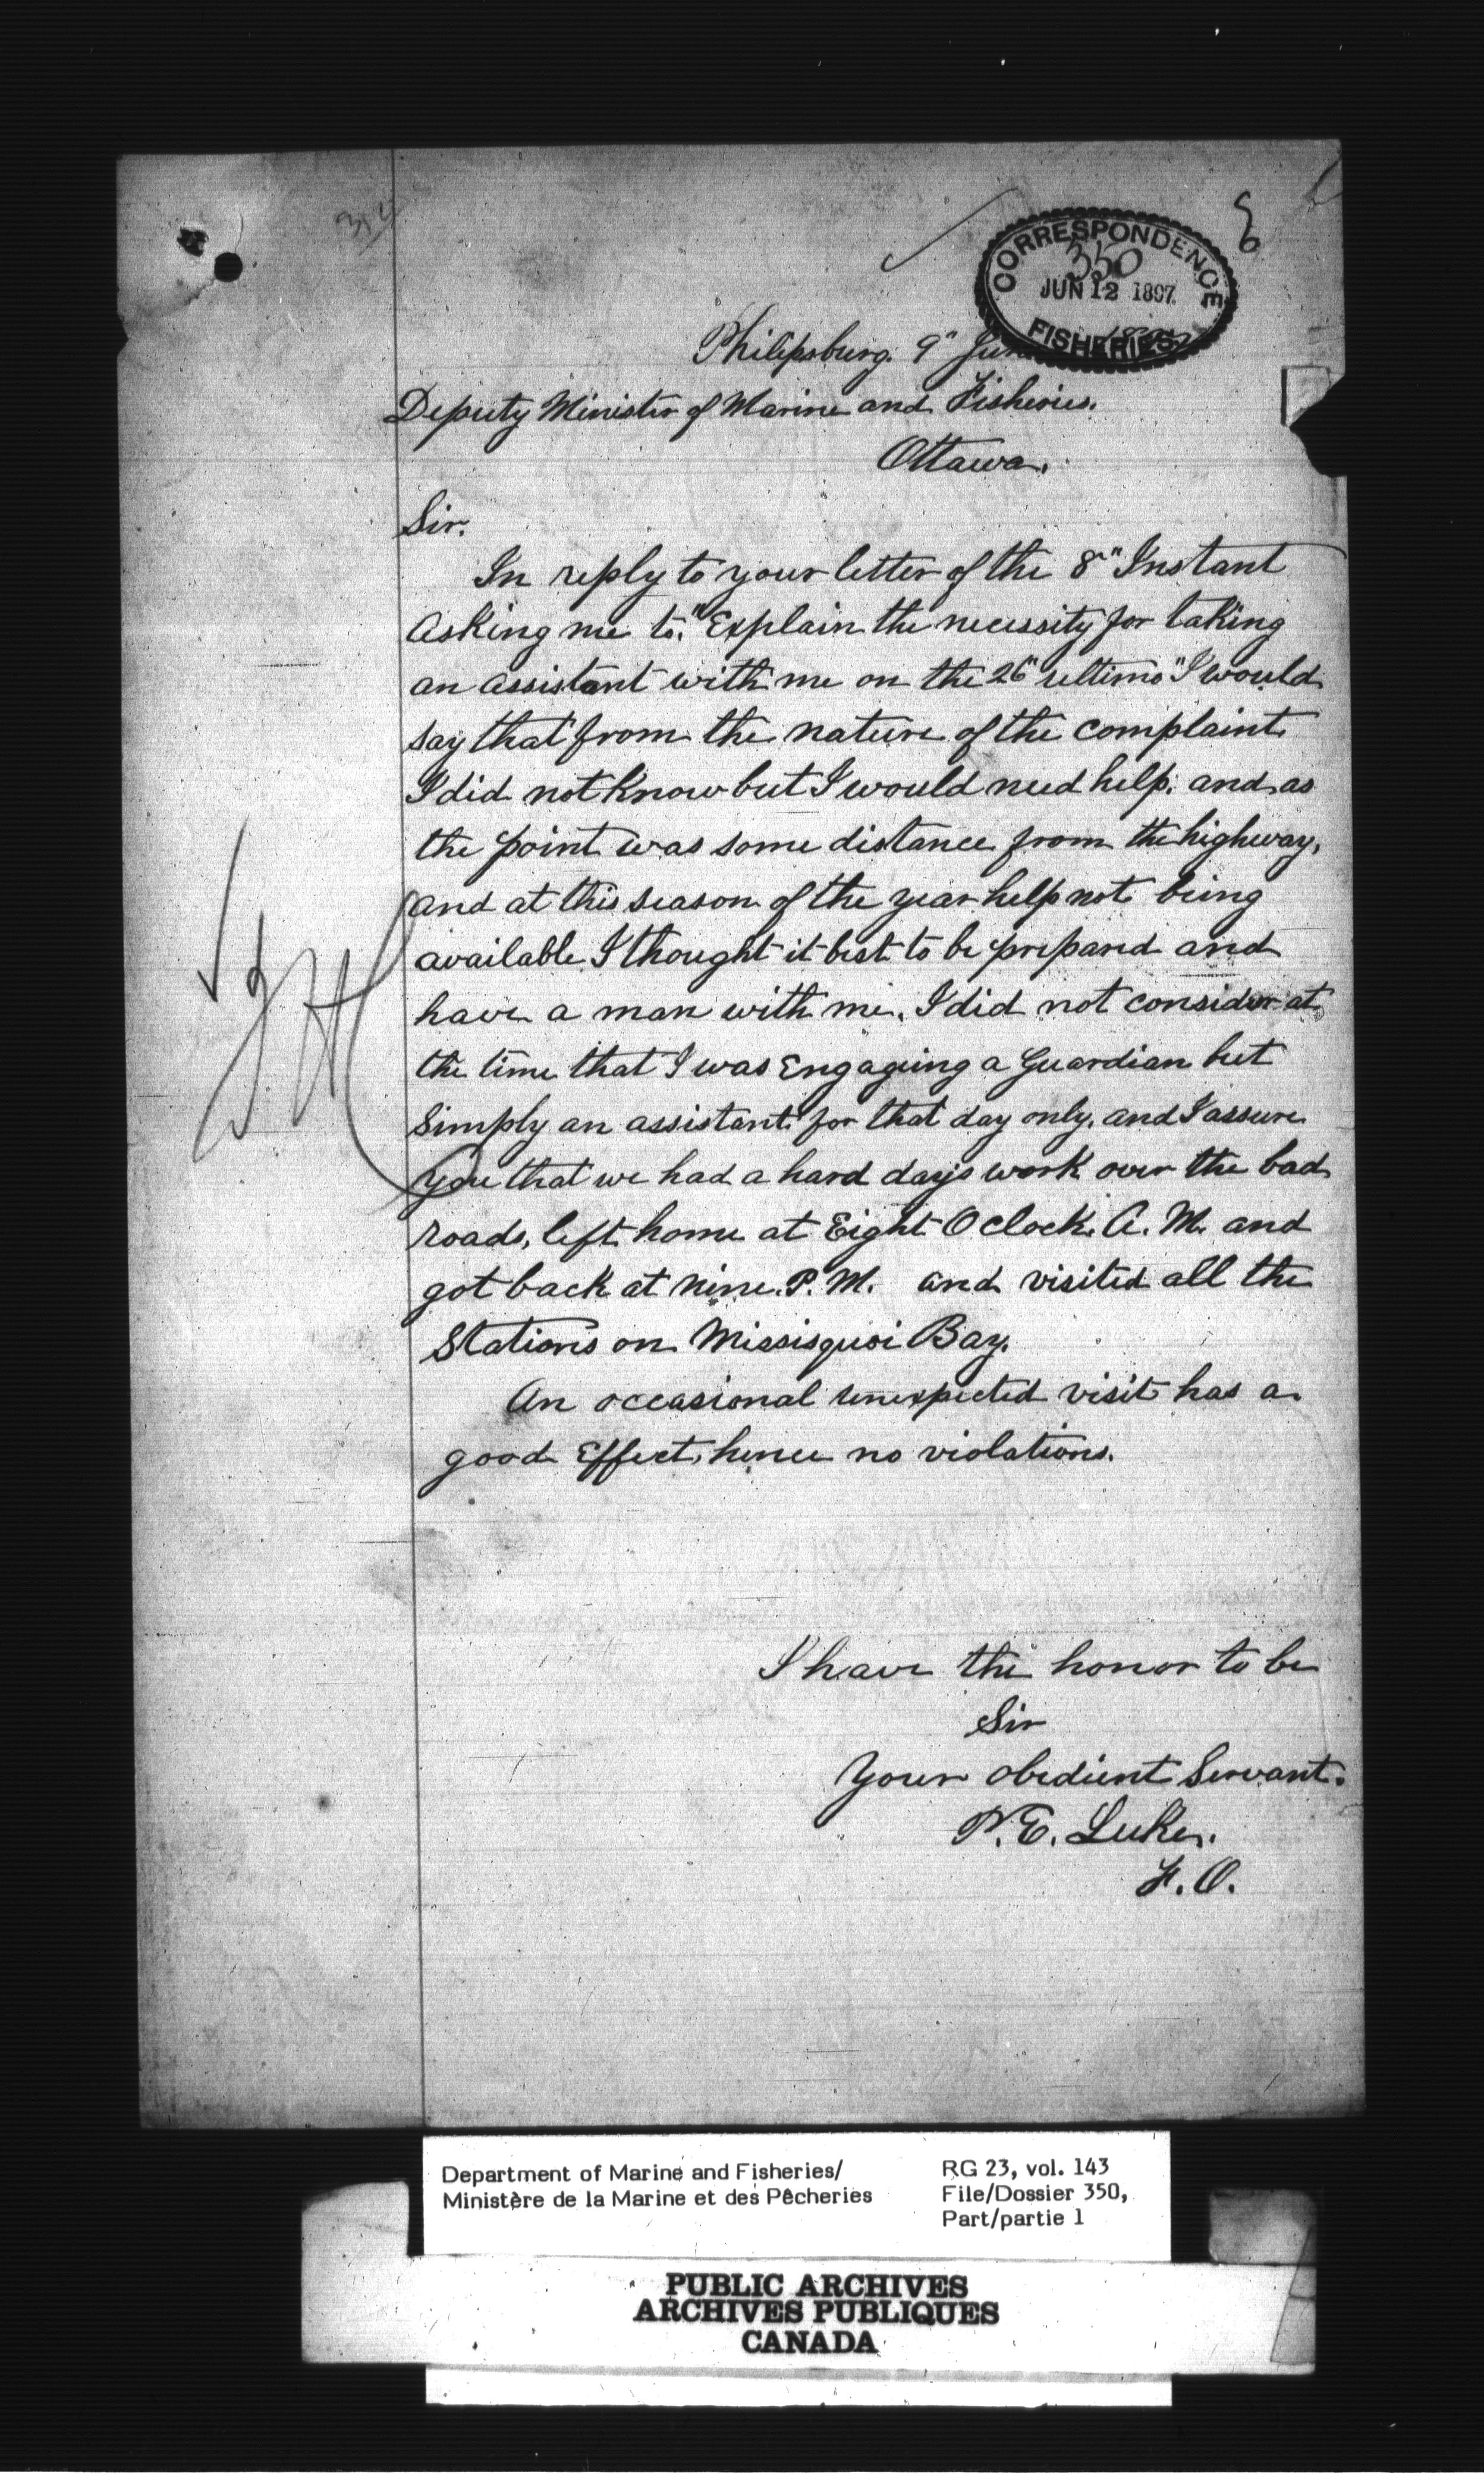 CORRESPONDENCE
350
JUN 12 1897
FISHERIES
Philipsburg. 9" June
Deputy Minister of Marine and Fisheries.
Ottawa.
Sir.
In reply to your letter of the 8" Instant
Asking me to. "Explain the necessity for taking
an assistant with me on the 26" ultimo" I would
say that from the nature of the complaint
I did not know but I would need help. and as
the point was some distance from the highway,
and at this season of the year help not being
available I thought it best to be prepared and
have a man with me. I did not consider at
the time that I was Engaging a Guardian but
Simply an assistant for that day only. and I assure
you that we had a hard day's work over the bad
roads, left home at Eight O clock. A. M. and
got back at nine. P. M. and visited all the
Stations on Missisquoi Bay.
An occasional unexpected visit has a
good Effect, hence no violations.
I have the honor to be
Sir
Your obedient Servant.
P. E. Luke.
F. O.
Department of Marine and Fisheries/
Ministère de la Marine et des Pêcheries
RG 23, vol. 143
File/Dossier 350,
Part/partie 1
PUBLIC ARCHIVES
ARCHIVES PUBLIQUES
CANADA